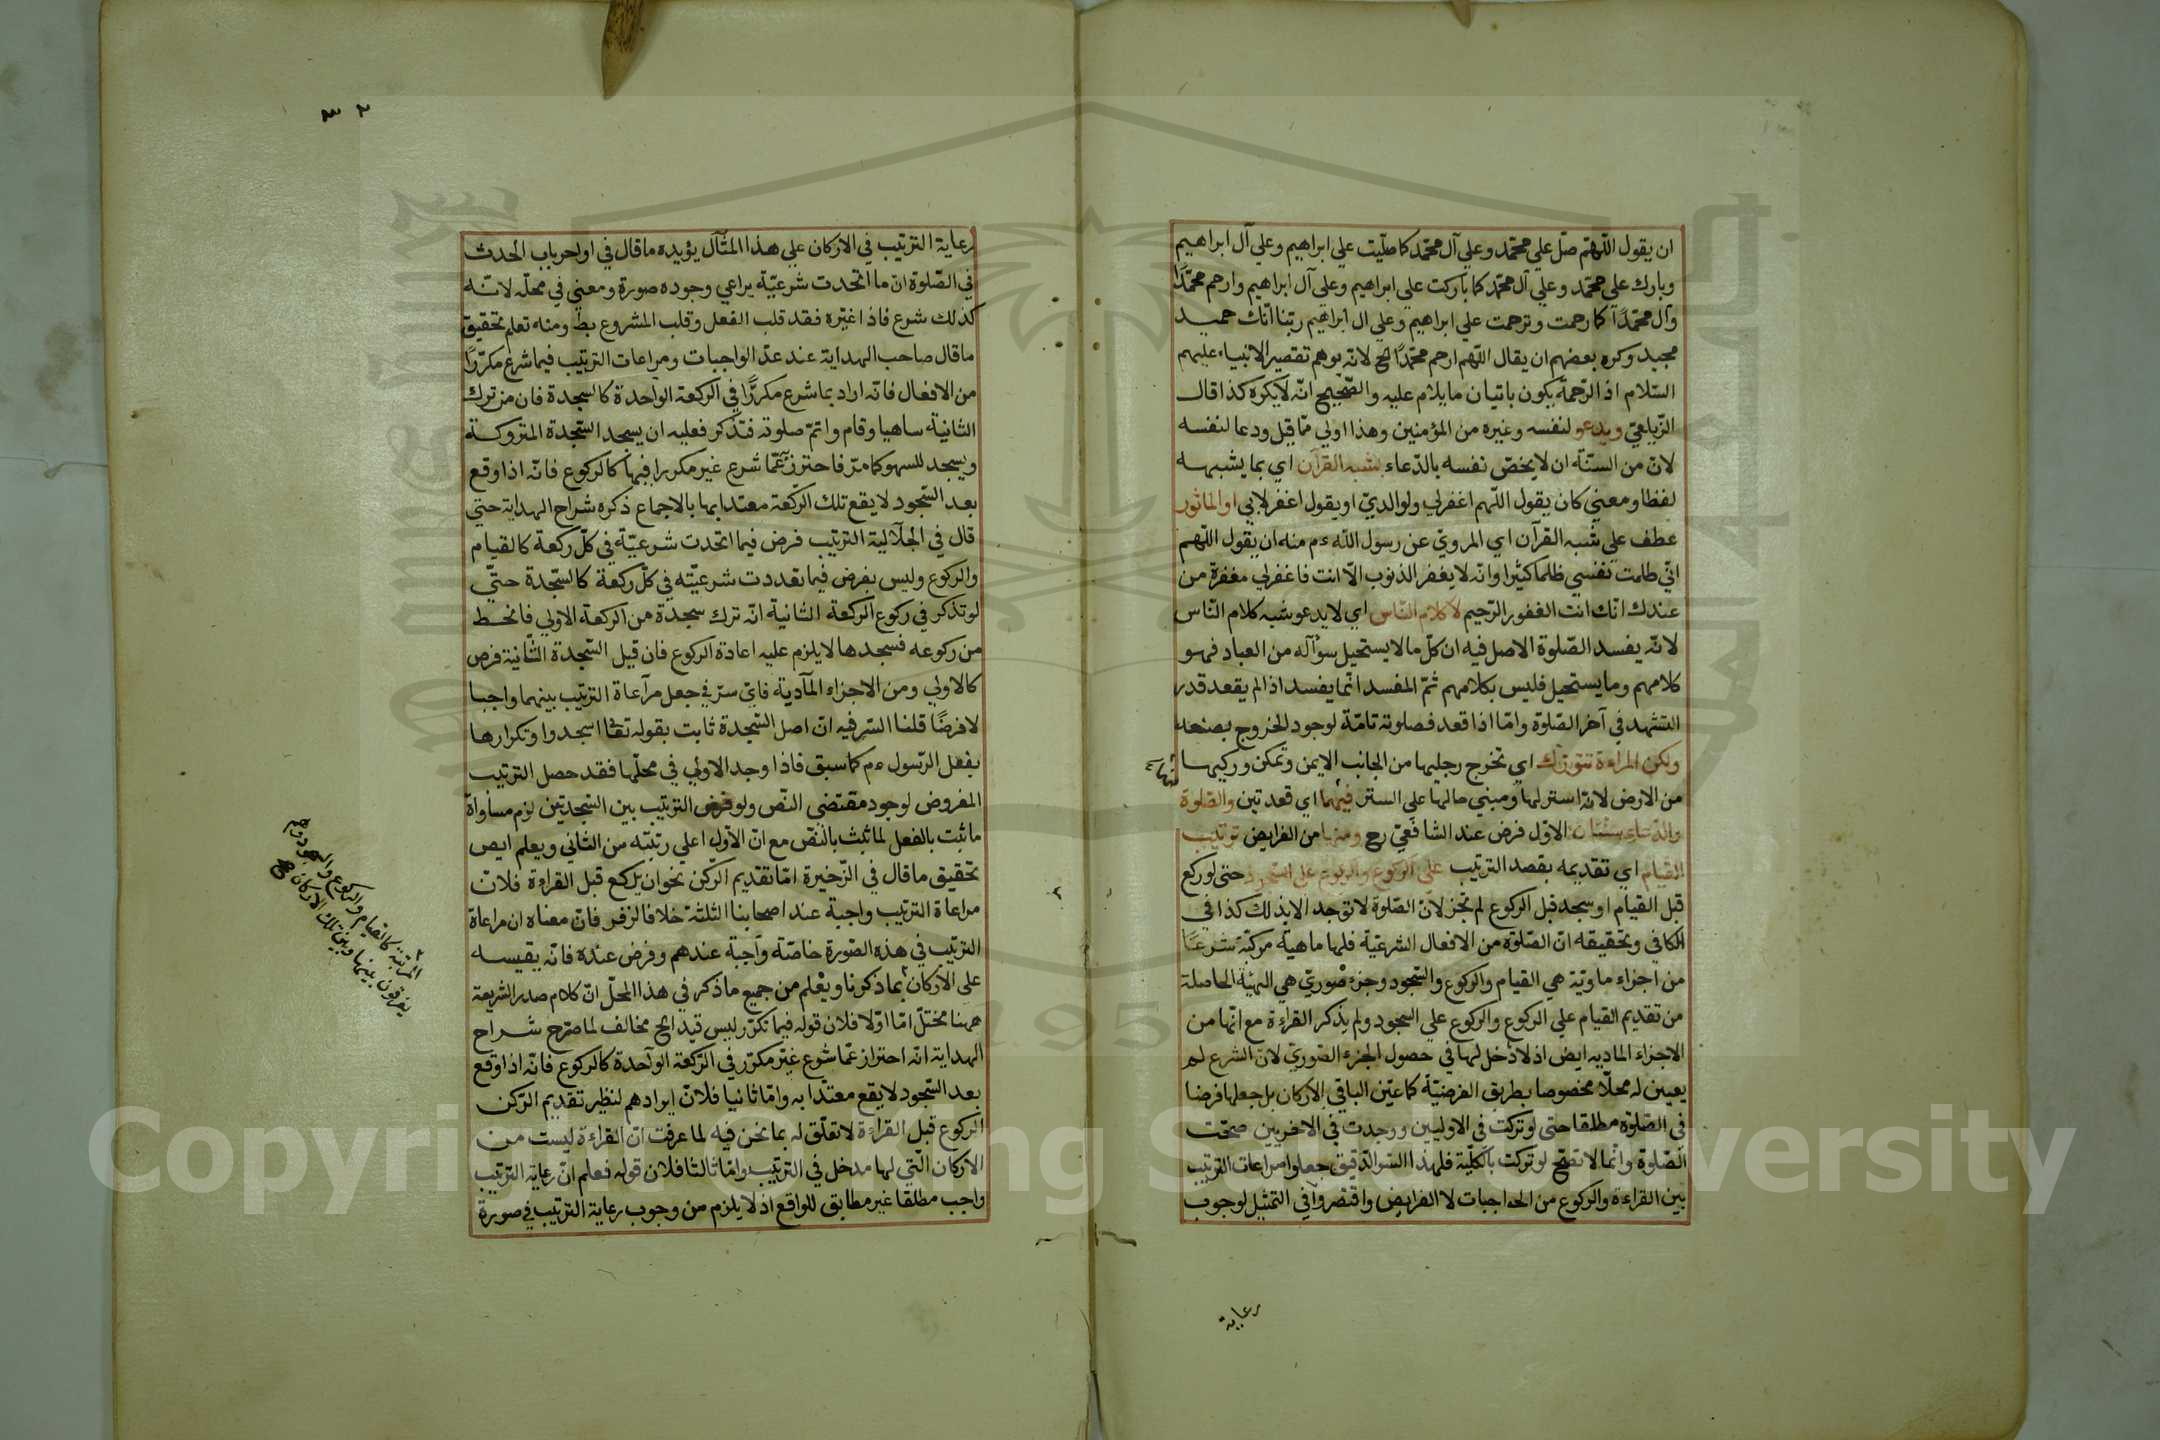 ان يقول اللّهمّ صلّ علي محمّد وعلي آل محمّد كما صلّيت علي ابراهيم وعلي آل ابراهيم
وبارك علي محمّد وعلي آل محمّد كما باركت علي ابراهيم وعلي آل ابراهيم وارحم محمّدًا
وآل محمّدًا كما رحمت وترحمت علي ابراهيم وعلي ال ابراهيم ربّنا انّك حميد
مجيد وكره بعضهم ان يقال اللّهم ارحم محمّدًا الخ لانّه يوهم تقصير الانبياء عليهم
السّلام اذ الرّحمة يكون باتيان ما يلام عليه والصّحيح انّه لايكره كذا قال
الزّيلعيّ ويدعو لنفسه وغيره من المؤمنين وهذا اولي ممّا قيل ودعا لنفسه
لانّ من السنّة ان لايخصّ نفسه بالدّعاء بشبه القرآن اي بما يشبهه
لفظا ومعني كان يقول اللّهم اغفرلي ولوالديّ او يقول اغفر لابي او الماثور
عطف علي شبه القرآن اي المرويّ عن رسول اللّه ءم منه ان يقول اللّهم
انّي ظلمت نفسي ظلما كثيرا وانّه لايغفر الذنوب الّا انت فاغفرلي مغفرة من
عندك انّك انت الغفور الرّحيم لاكلام النّاس اي لايدعو شبه كلام النّاس
لانّه يفسد الصّلوة الاصل فيه ان كلّ ما لايستحيل سوآله من العباد فهو
كلامهم وما يستحيل فليس بكلامهم ثمّ المفسد انّما يفسد اذا لم يقعد قدر
التشهد في آخر الصّلوة وامّا اذا قعد فصلوته تامّة لوجود الخروج بصنعه
ولكن المراءة تتورّك اي تخرج رجليها من الجانب الايمن وتمكن وركيها
من الارض لانّه استر لها ومبني حالها علي الستر فيهما اي قعدتين والصّلوة
والدّعاء سنّتان الاوّل فرض عند الشافعيّ رح ومنها من الفرايض ترتيب
القيام اي تقديمه بقصد الترتيب علي الركوع والركوع علي السّجود حتى لو ركع
قبل القيام او سجد قبل الركوع لم تجز لانّ الصّلوة لاتوجد الابذلك كذا في
الكافي وتحقيقه انّ الصّلوة من الافعال الشرعيّة فلها ماهية مركّبة شرعيّا
من اجزاء ماديّة هي القيام والركوع والسّجود وجزء صوريّ هي الهيئة الحاصلة
من تقديم القيام علي الركوع والركوع علي السجود ولم يذكر القراءة مع انّها من
الاجزاء الماديه ايض اذ لادخل لها في حصول الجزء الصّوريّ لانّ الشرع لم
يعين له محلّا مخصوصا بطريق الفرضيّة كما عيّن الباقي الاركان بل جعلها فرضا
في الصّلوة مطلقا حتى لو تركت في الاوليين ووجدت في الاخريين صحّت
الصّلوة وانّما لاتصحّ لو تركت بالكلّية فلهذا السّر الدّقيق جعلوا مراعات الترتيب
بين القراءة والركوع من الواجبات لا الفرايض واقتصروا في التمثيل لوجوب
رعاية
رعاية الترتيب في الاركان علي هذا المثال يؤيده ما قال في اواخر باب الحدث
في الصّلوة انّ ما اتّحدت شرعيّة يراعي وجوده صورة ومعني في محلّه لانّه
كذلك شرع فاذا غيّره فقد قلب الفعل وقلب المشروع بط ومنه تعلم تحقيق
ما قال صاحب الهداية عند عدّ الواجبات ومراعات الترتيب فيما شرع مكرّرًا
من الافعال فانّه اراد بما شرع مكررًا في الركعة الواحدة كالسجدة فان من ترك
الثانية ساهيا وقام واتمّ صلوته فتذكر فعليه ان يسجد السّجدة المتروكة
ويسجد للسهو كما مرّ فاحترز عمّا شرع غير مكرر فيها كالركوع فانّه اذا وقع
بعد السّجود لايقع تلك الركعة معتدا بها بالاجماع ذكره شراح الهداية حتي
قال في الجلالية الترتيب فرض فيما اتحدت شرعيّة في كلّ ركعة كالقيام
والركوع وليس بفرض فيما تعددت شرعيّته في كلّ ركعة كالسّجدة حتّي
لو تذكر في ركوع الركعة الثانية انّه ترك سجدة من الركعة الاولي فانحط
من ركوعه فسجدها لايلزم عليه اعادة الركوع فان قيل السّجدة الثّانية فرض
كالاولي ومن الاجزاء المآدية فايّ سرّ في جعل مرآعاة الترتيب بينهما واجبا
لافرضًا قلنا السّر فيه انّ اصل السّجدة ثابت بقوله تعا اسجدوا وتكرارها
بفعل الرّسول ءم كما سبق فاذا وجد الاولي في محلّها فقد حصل الترتيب
المفروض لوجود مقتضي النّص ولو فرض الترتيب بين السّجدتين لزم مساواة
ما ثبت بالفعل لما ثبت بالنّص مع انّ الاوّل اعلي رتبته من الثّاني ويعلم ايض
تحقيق ما قال في الذّخيرة امّا تقديم الركن نحو ان يركع قبل القراءة فلانّ
مراعاة الترتيب واجبة عند اصحابنا الثلثة خلافا لزفر فانّ معناه ان مراعاة
الترتيب في هذه الصّورة خاصّة واجبة عندهم وفرض عنده فانّه يقيسه
علي الاركان بما ذكرنا ويعلم من جميع ما ذكر في هذا المحلّ انّ كلام صدر الشريعة
ههنا مختلّ امّا اوّلا فلان قوله فيما تكرّر ليس قيدا الخ مخالف لما صرّح شراح
الهداية انّه احتراز عمّا شرع غير مكرّر في الركعة الواحدة كالركوع فانّه اذا وقع
بعد السّجود لايقع معتدّا به وامّا ثانيا فلانّ ايرادهم لنظير تقديم الرّكن
الركوع قبل القراءة لاتعلّق له بما نحن فيه لما عرفت انّ القراءة ليست من
الاركان الّتي لها مدخل في الترتيب وامّا ثالثا فلانّ قوله فعلم انّ رعاية الترتيب
واجب مطلقا غير مطابق للواقع اذ لا يلزم من وجوب رعاية الترتيب في صورة
كالقيام والركوع والسجود وهم
يفرقون بينها وبين تلك الاركان صح
Copyright © King Saud University
195